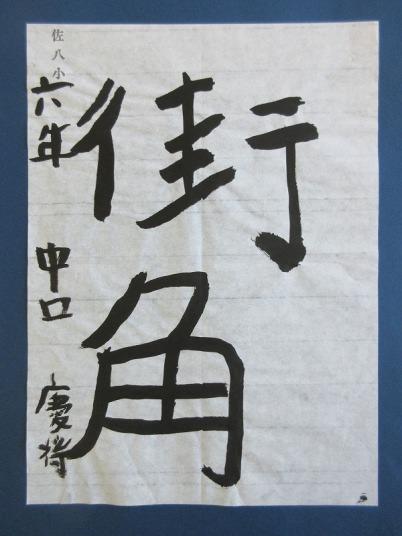 街
角
佐八小
六年 中口 慶将